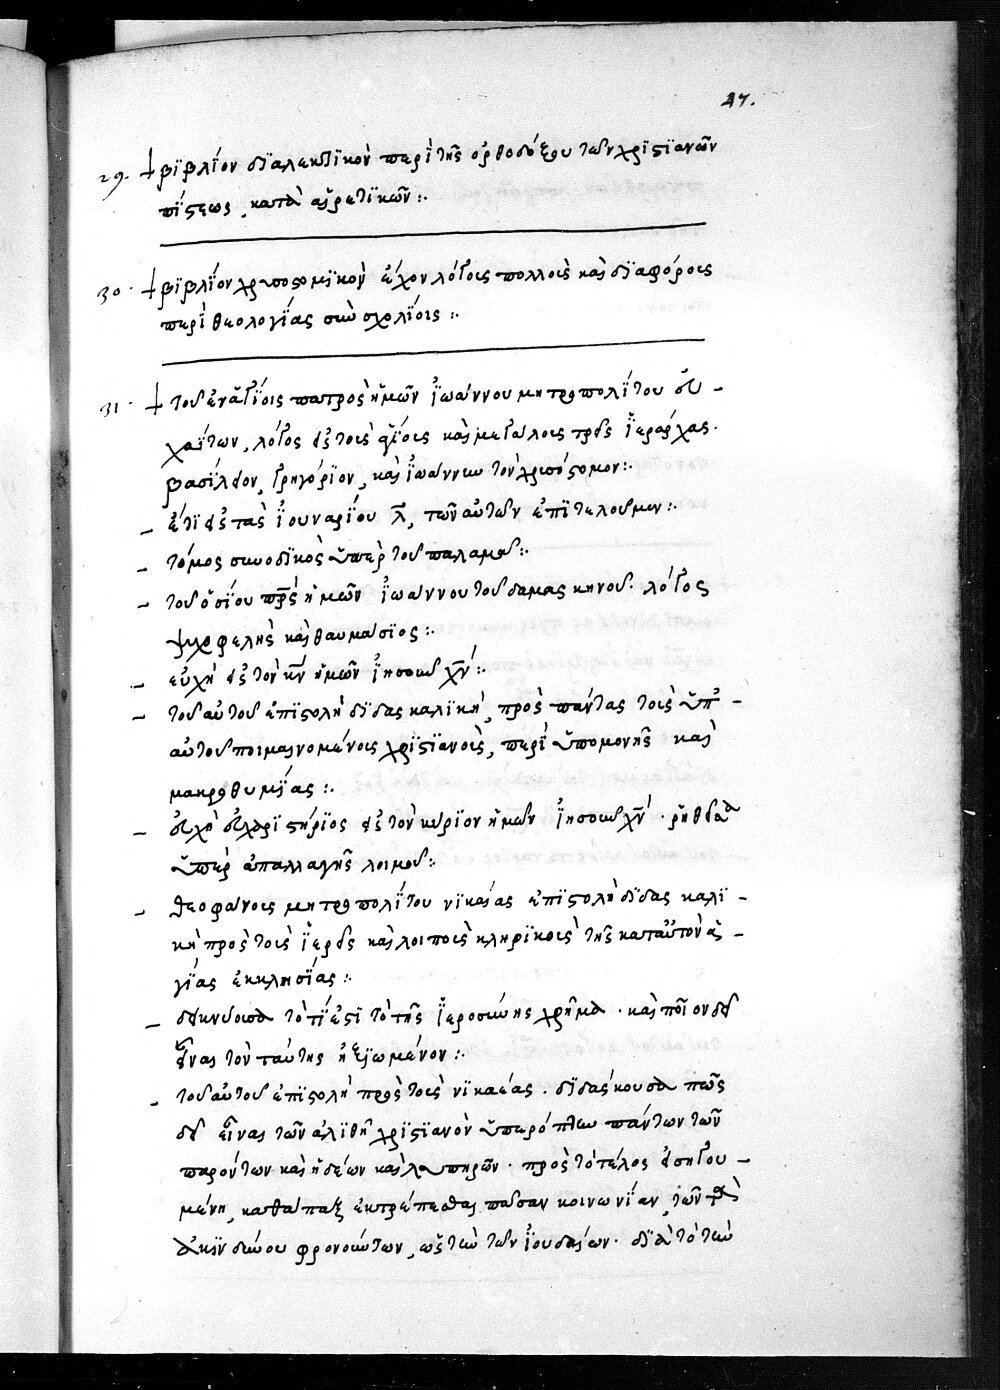 27.
29. † βϊβλίον δϊαλεκτϊκὸν περὶ τῆς ὀρθοδόξου τῶν χρϊστϊανῶν
πίστεως, κατὰ αἱρετϊκῶν :.
30. † βϊβλίον χρυσοστομϊκὸν ἔχον λόγους πολλοὺς καὶ δϊαφόρους
περὶ θεολογίας σὺν σχολίοις :.
31. † τοῦ ἐν ἁγίοις πατρὸς ἡμῶν ἰωάννου μητροπολίτου εὐ -
χαΐτων, λόγος εἰς τοὺς θείους καὶ μεγάλους τρεῖς ἱεράρχας.
βασίλειον, γρηγόριον, καὶ ἰωάννην τὸν χρυσόστομον :.
- ἔτϊ εἰς τὰς ἰουναρίου λ̅, τῶν αὐτῶν ἐπϊτελουμεν :.
- τόμος συνοδϊκὸς ὑπὲρ τοῦ παλαμᾶ :.
- τοῦ ὁσίου πρ̅ς ἡμῶν ἰωάννου τοῦ δαμασκηνοῦ. λόγος
ψυχοφελὴς καὶ θαυμάσϊος :.
- εὐχὴ εἰς τὸν κ̅ν ἡμῶν ἰησοῦν χ̅ν :.
- τοῦ αὐτοῦ ἐπϊστολὴ δϊδασκαλϊκὴ, πρὸς πάντας τοὺς ὑπ' -
αὐτοῦ ποιμαινομένους χρϊστϊανοὺς, περὶ ὑπομονῆς καὶ
μακροθυμίας :.
- εὐχὴ εὐχαρϊστήρϊος εἰς τὸν κύρϊον ἡμῶν ἰησοῦν χ̅ν. ῥηθεῖσα
ὑπὲρ ἀπαλλαγῆς λοιμοῦ :.
- θεοφάνους μητροπολίτου νϊκαίας ἐπϊστολὴ δϊδασκαλϊ -
κὴ πρὸς τοὺς ἱερεῖς καὶ λοιποὺς κληρϊκοὺς τῆς κατ' αὐτὸν ἁ -
γίας ἐκκλησίας :.
- δεικνύουσα τὸ τί ἐστϊ τὸ τῆς ἱεροσύνης χρῆμα. καὶ ποῖον δεῖ
εἶναι τὸν ταύτης ἠξϊωμένον :.
- τοῦ αὐτοῦ ἐπϊστολὴ πρὸς τοὺς νϊκαέας. δϊδάσκουσα πῶς
δεῖ εἶναι τῶν ἀλϊθῆ χρϊστϊανὸν ὑπερόπτην πάντων τῶν
παρόντων καὶ ἡδέων καὶ λυπηρῶν. πρὸς τὸ τέλος εἰσηγου -
μένη, καθάπαξ ἐκτρέπεσθαι πᾶσαν κοινωνίαν, τῶν τὰ
ἀκϊνδύνου φρονούντων, ὡς τὴν τῶν ἰουδαίων. δϊὰ τὸ τὴν